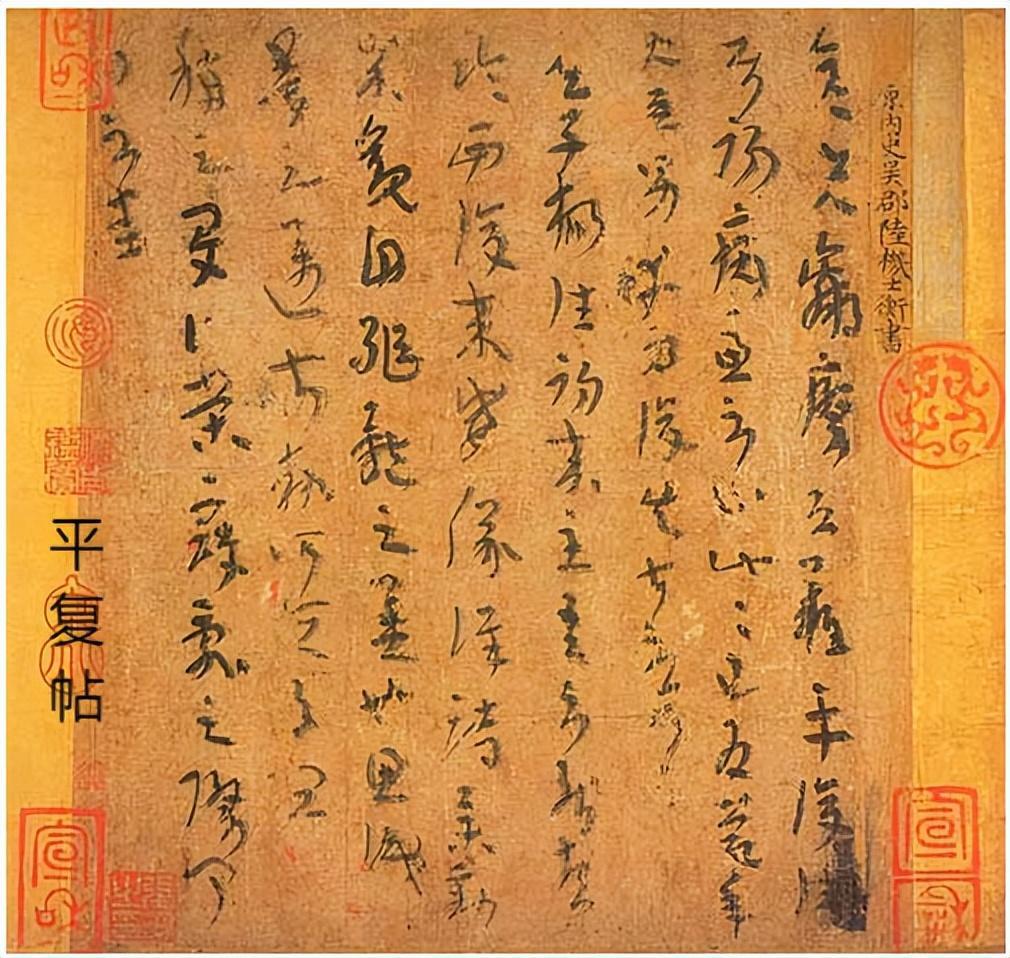 原内史吳郡陸機士衡書
彦先羸瘵恐難平復往
屬初病慮不止此此已為慶承
使唯男幸為復失前憂耳
吳子楊往初來主吾不能盡
臨西復來威儀詳跱舉動成
觀自軀體之美也思識
量之邁前執所恒有宜
稱之夏伯榮寇亂之際聞
問不悉
平复帖